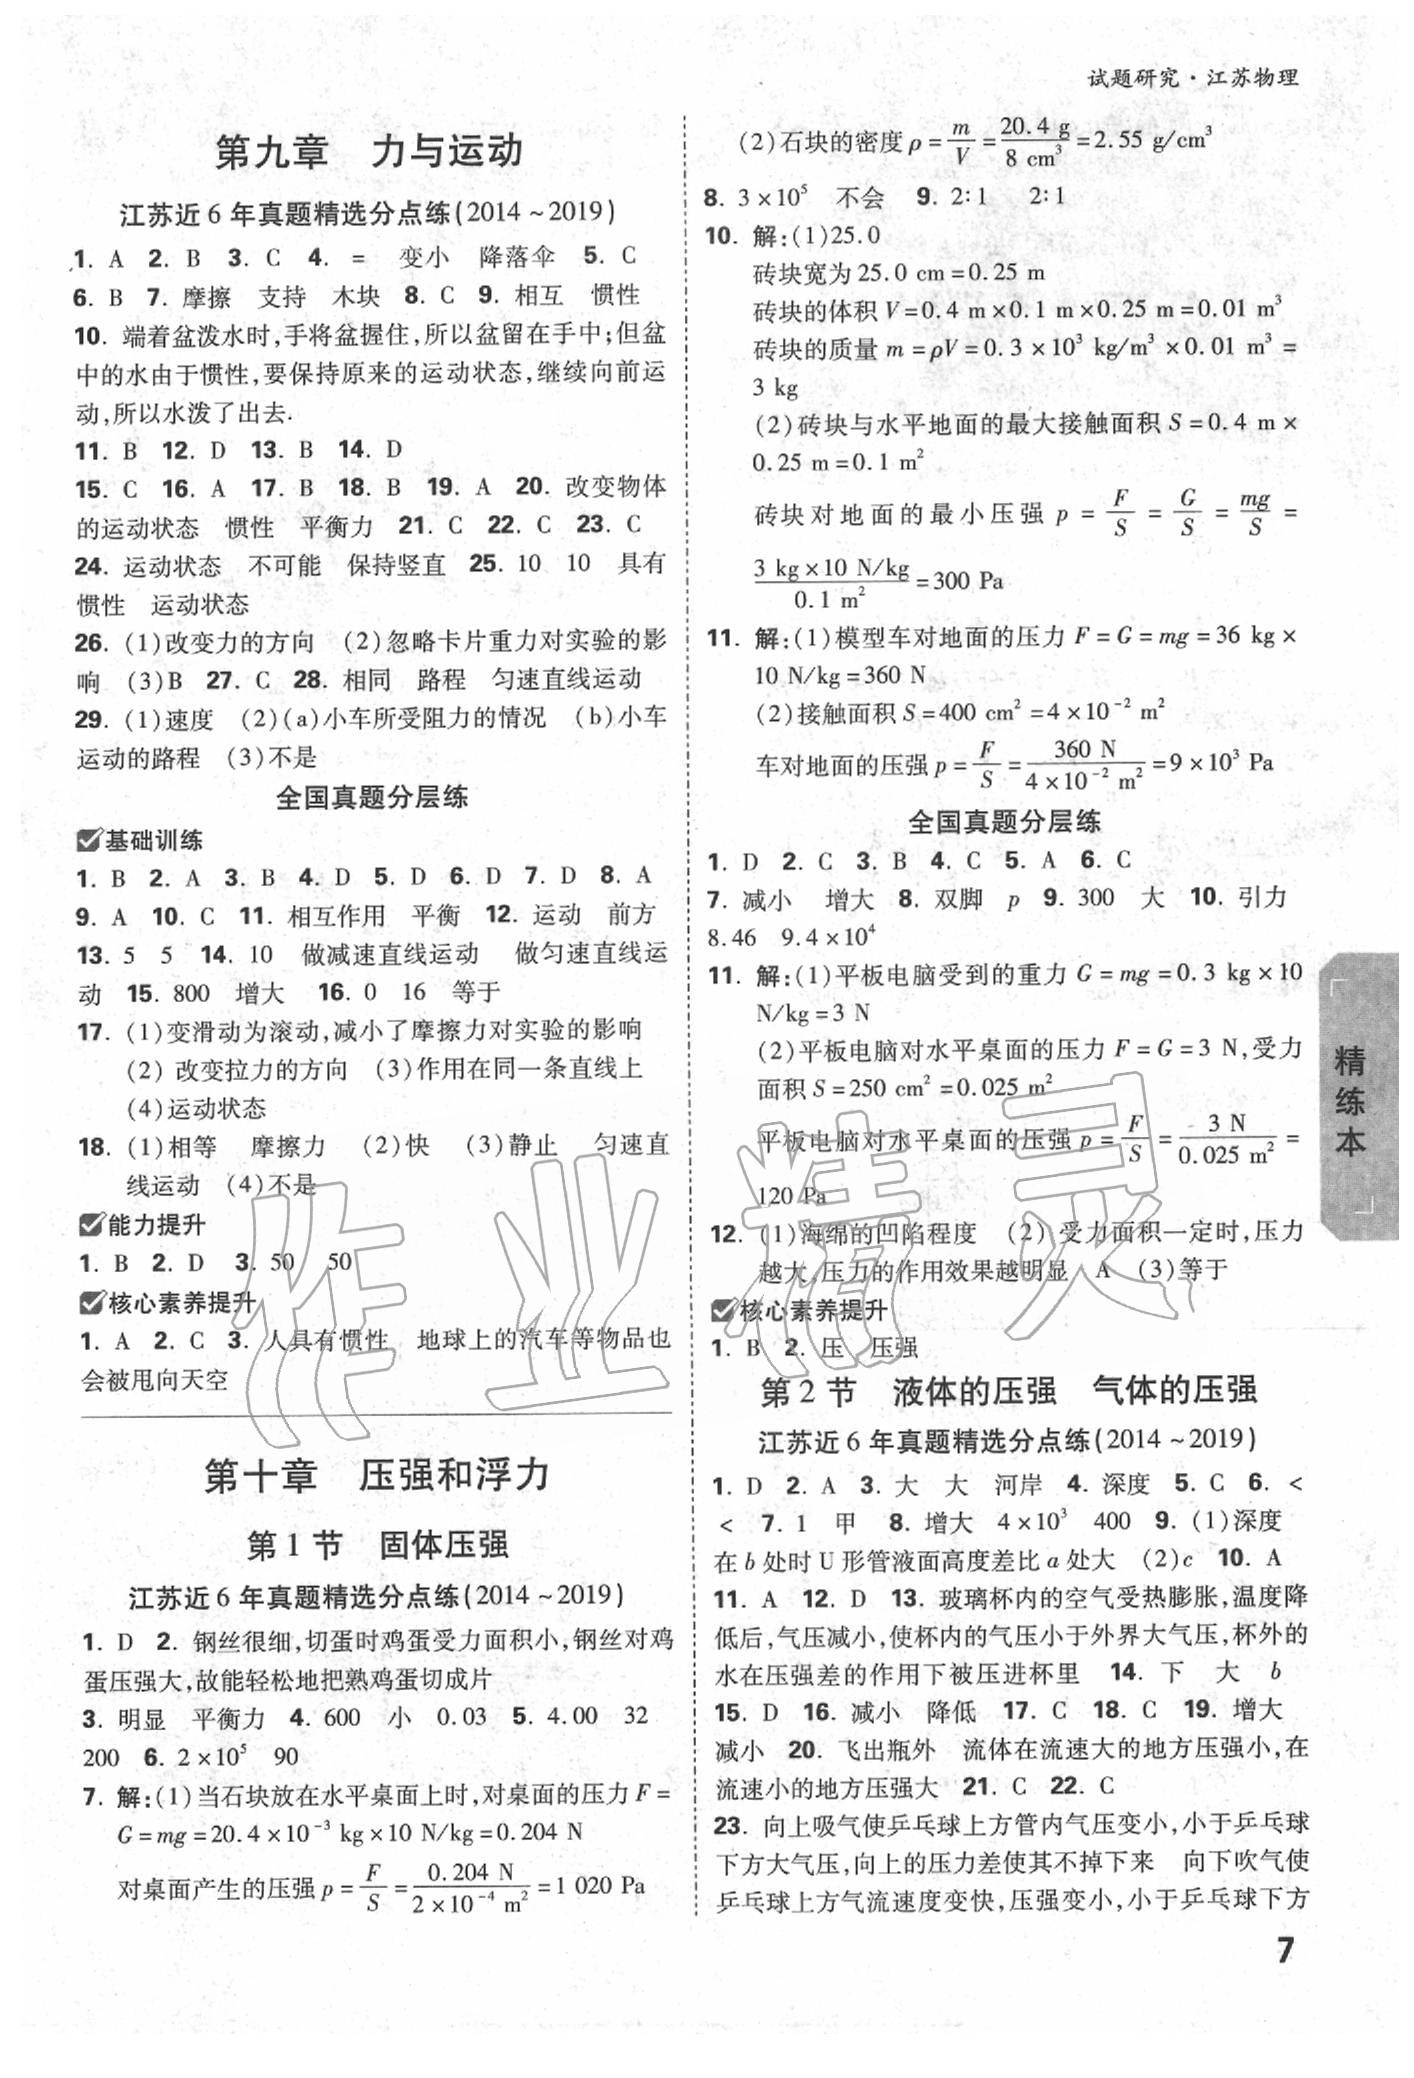 试题研究·江苏物理
第九章 力与运动
江苏近6年真题精选分点练(2014~2019)
1. A 2. B 3. C 4. = 变小 降落伞 5. C
6. B 7. 摩擦 支持 木块 8. C 9. 相互 惯性
10. 端着盆泼水时,手将盆握住,所以盆留在手中;但盆
中的水由于惯性,要保持原来的运动状态,继续向前运
动,所以水泼了出去.
11. B 12. D 13. B 14. D
15. C 16. A 17. B 18. B 19. A 20. 改变物体
的运动状态 惯性 平衡力 21. C 22. C 23. C
24. 运动状态 不可能 保持竖直 25. 10 10 具有
惯性 运动状态
26. (1)改变力的方向 (2)忽略卡片重力对实验的影
响 (3)B 27. C 28. 相同 路程 匀速直线运动
29. (1)速度 (2)(a)小车所受阻力的情况 (b)小车
运动的路程 (3)不是
全国真题分层练
基础训练
1. B 2. A 3. B 4. D 5. D 6. D 7. D 8. A
9. A 10. C 11. 相互作用 平衡 12. 运动 前方
13. 5 5 14. 10 做减速直线运动 做匀速直线运
动 15. 800 增大 16. 0 16 等于
17. (1)变滑动为滚动,减小了摩擦力对实验的影响
(2) 改变拉力的方向 (3)作用在同一条直线上
(4)运动状态
18. (1)相等 摩擦力 (2)快 (3)静止 匀速直
线运动 (4)不是
能力提升
1. B 2. D 3. 50 50
核心素养提升
1. A 2. C 3. 人具有惯性 地球上的汽车等物品也
会被甩向天空
第十章 压强和浮力
第1节 固体压强
江苏近6年真题精选分点练(2014~2019)
1. D 2. 钢丝很细,切蛋时鸡蛋受力面积小,钢丝对鸡
蛋压强大,故能轻松地把熟鸡蛋切成片
3. 明显 平衡力 4. 600 小 0.03 5. 4.00 32
200 6. 2×10⁵ 90
7. 解:(1)当石块放在水平桌面上时,对桌面的压力 F=
G=mg=20.4×10⁻³ kg×10 N/kg=0.204 N
对桌面产生的压强 p=F/S=0.204 N/(2×10⁻⁴ m²)=1 020 Pa
(2)石块的密度 ρ=m/V=20.4 g/8 cm³=2.55 g/cm³
8. 3×10⁵ 不会 9. 2:1 2:1
10. 解:(1)25.0
砖块宽为25.0 cm=0.25 m
砖块的体积 V=0.4 m×0.1 m×0.25 m=0.01 m³
砖块的质量 m=ρV=0.3×10³ kg/m³×0.01 m³=
3 kg
(2)砖块与水平地面的最大接触面积 S=0.4 m×
0.25 m=0.1 m²
砖块对地面的最小压强 p=F/S=G/S=mg/S=
(3 kg×10 N/kg)/(0.1 m²)=300 Pa
11. 解:(1)模型车对地面的压力 F=G=mg=36 kg×
10 N/kg=360 N
(2)接触面积 S=400 cm²=4×10⁻² m²
车对地面的压强 p=F/S=360 N/(4×10⁻² m²)=9×10³ Pa
全国真题分层练
1. D 2. C 3. B 4. C 5. A 6. C
7. 减小 增大 8. 双脚 p 9. 300 大 10. 引力
8.46 9.4×10⁴
11. 解:(1)平板电脑受到的重力 G=mg=0.3 kg×10
N/kg=3 N
(2)平板电脑对水平桌面的压力 F=G=3 N,受力
面积 S=250 cm²=0.025 m²
平板电脑对水平桌面的压强 p=F/S=3 N/(0.025 m²)=
120 Pa
12. (1)海绵的凹陷程度 (2) 受力面积一定时,压力
越大,压力的作用效果越明显 A (3)等于
核心素养提升
1. B 2. 压 压强
第2节 液体的压强 气体的压强
江苏近6年真题精选分点练(2014~2019)
1. D 2. A 3. 大 大 河岸 4. 深度 5. C 6. <
< 7. 1 甲 8. 增大 4×10³ 400 9. (1)深度
在b处时U形管液面高度差比a处大 (2)c 10. A
11. A 12. D 13. 玻璃杯内的空气受热膨胀,温度降
低后,气压减小,使杯内的气压小于外界大气压,杯外的
水在压强差的作用下被压进杯里 14. 下 大 b
15. D 16. 减小 降低 17. C 18. C 19. 增大
减小 20. 飞出瓶外 流体在流速大的地方压强小,在
流速小的地方压强大 21. C 22. C
23. 向上吸气使乒乓球上方管内气压变小,小于乒乓球
下方大气压,向上的压力差使其不掉下来 向下吹气使
乒乓球上方气流速度变快,压强变小,小于乒乓球下方
精练本
7
作业精灵